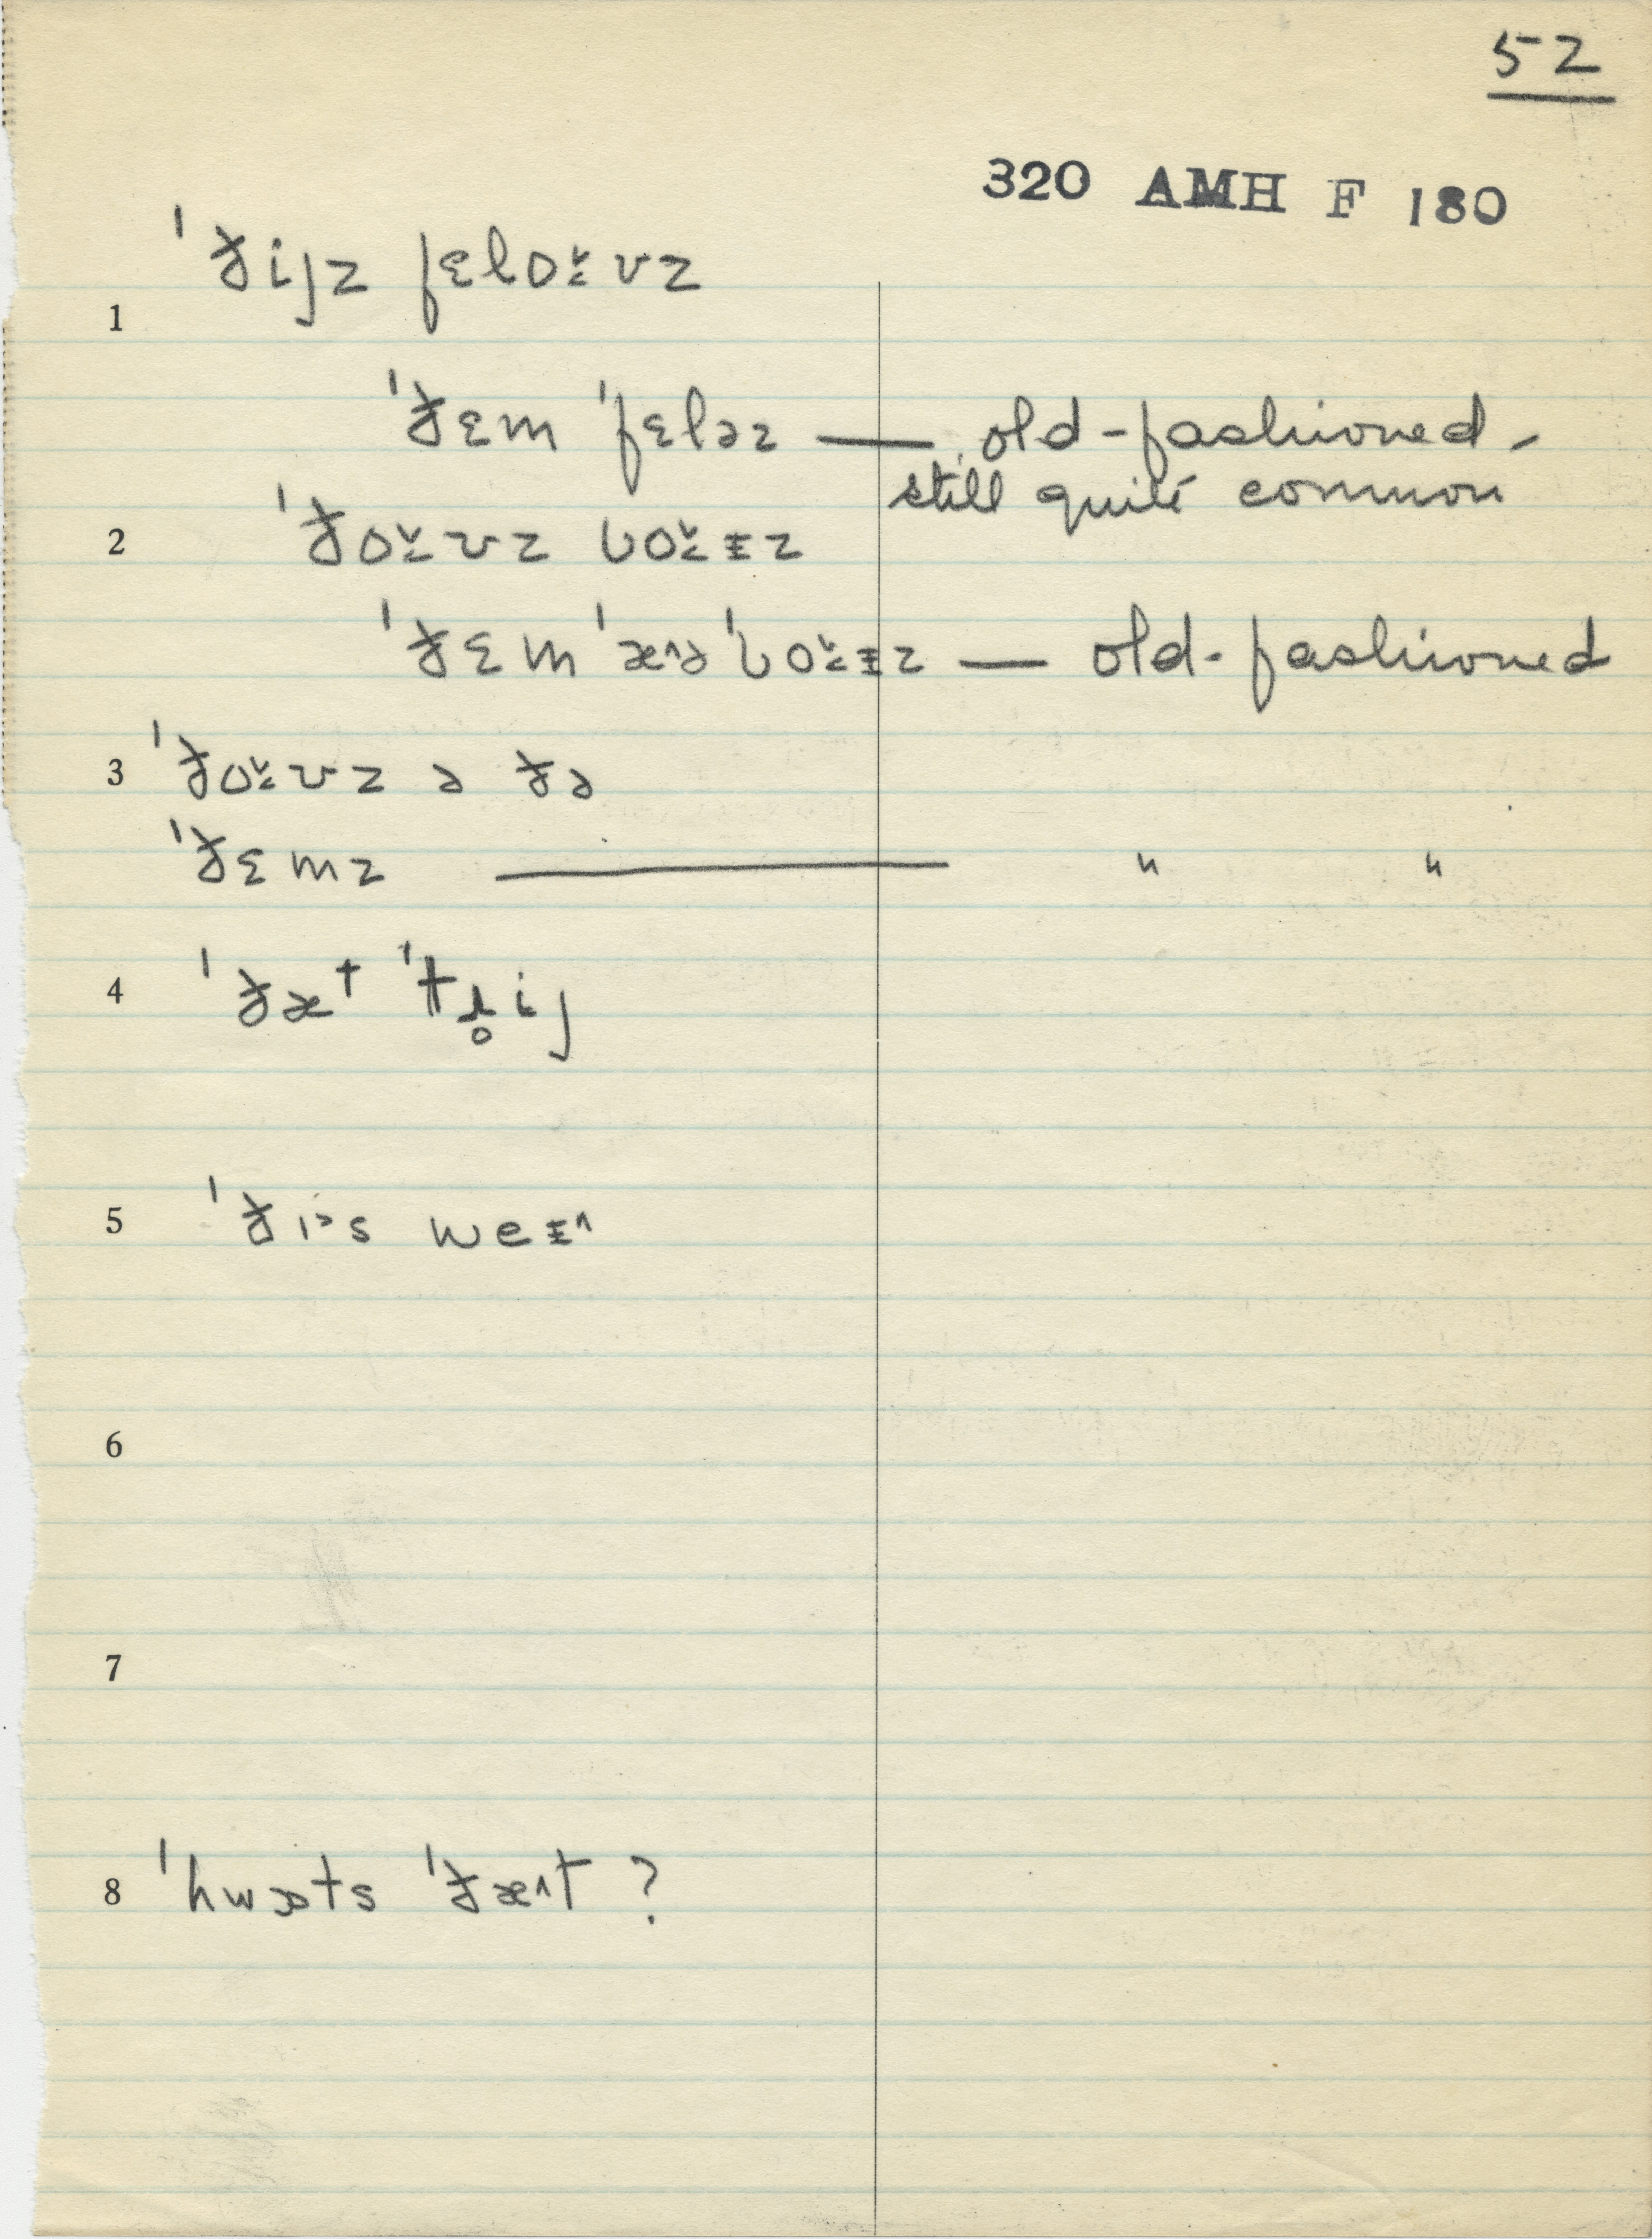 52
320 AMH F 180
ˈðijz fɛlo˅ʊz
1
ˈðɛm ˈfɛləz — old-fashioned -
still quite common
2 ˈðo˅ʊz bo˅ɨz
ˈðɛm ˈæ^ə ˈbo˅ɨz — old-fashioned
3 ˈðo˅ʊz ə ðə
ˈðɛmz — " "
4 ˈðæt ˈtɹ̥ij
5 ˈðɪ˃s weɨ^
6
7
8 ˈhwɒts ˈðæ^t ?